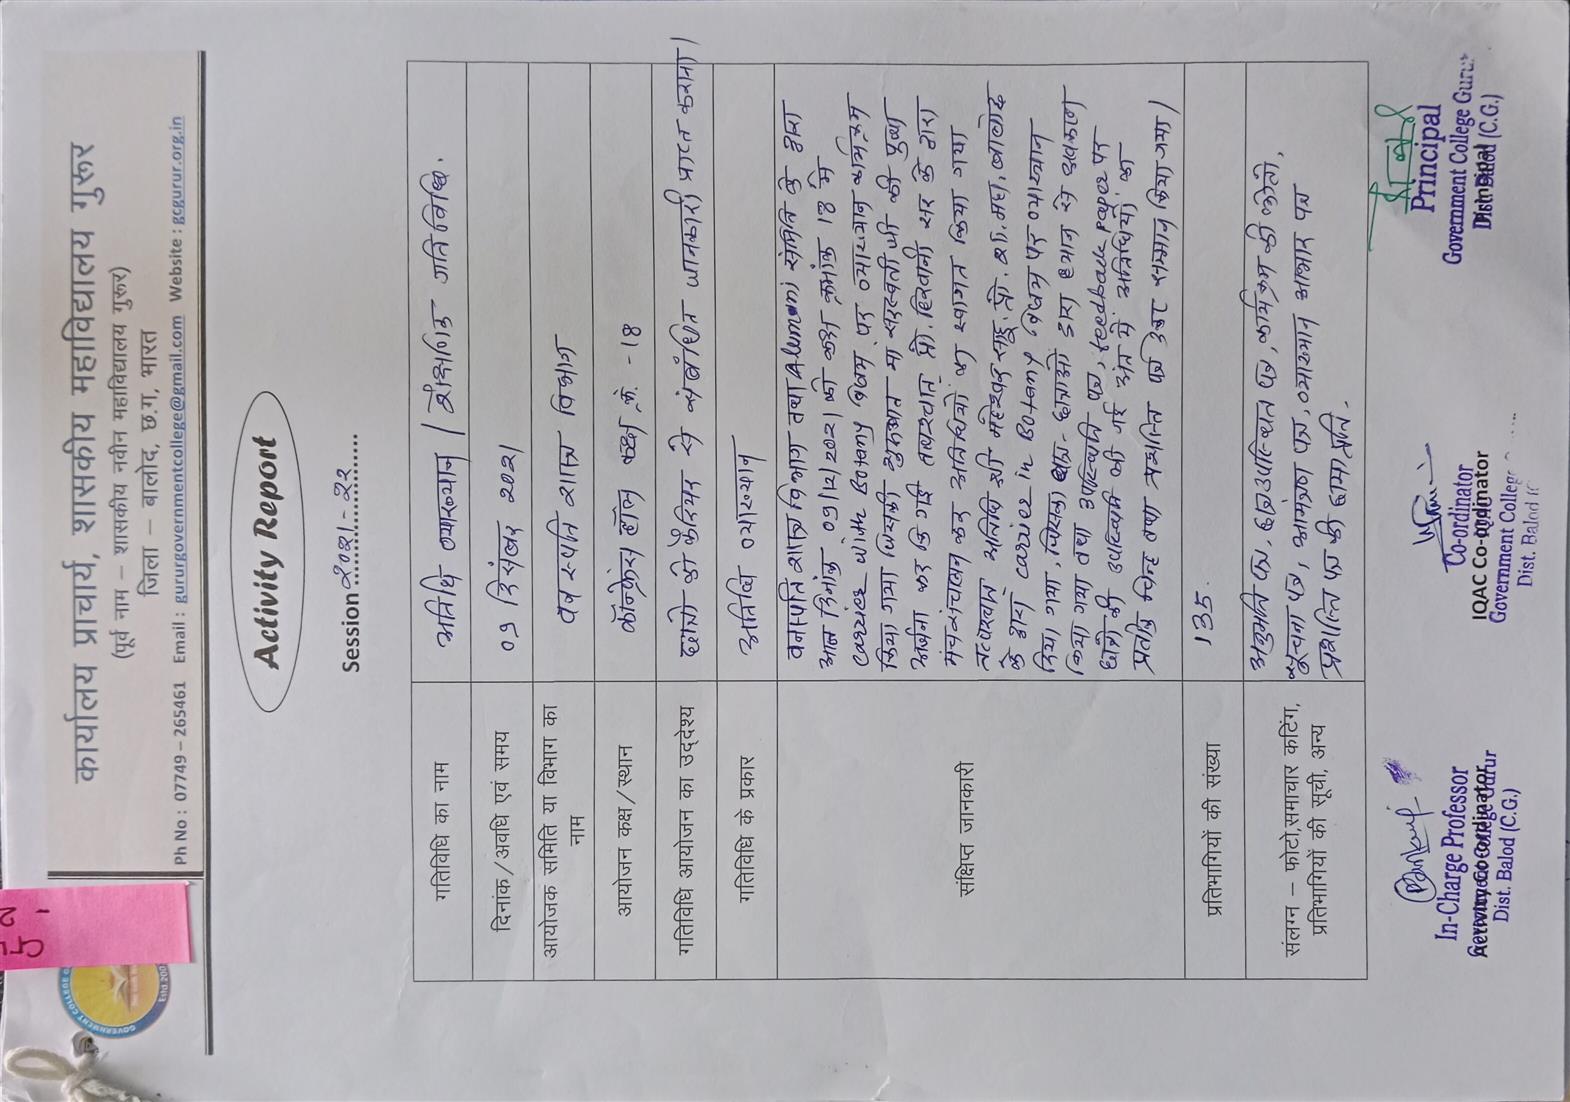 कार्यालय प्राचार्य, शासकीय महाविद्यालय गुरूर
(पूर्व नाम – शासकीय नवीन महाविद्यालय गुरूर)
जिला – बालोद, छ.ग, भारत
Ph No : 07749 – 265461 Email : gururgovernmentcollege@gmail.com Website : gcgurur.org.in
Activity Report
Session २०२१-२२
गतिविधि का नाम
अतिथि व्याख्यान / शैक्षणिक गतिविधि.
दिनांक/अवधि एवं समय
०९ दिसंबर २०२१
आयोजक समिति या विभाग का नाम
वनस्पति शास्त्र विभाग
आयोजन कक्ष/स्थान
कॉन्फ्रेंस हॉल कक्ष क्रं. -18
गतिविधि आयोजन का उद्देश्य
छात्रों को कैरियर से संबंधित जानकारी प्राप्त करवाना।
गतिविधि के प्रकार
अतिथि व्याख्यान
संक्षिप्त जानकारी
वनस्पति शास्त्र विभाग तथा Alumni समिति के द्वारा
आज दिनांक 09/12/2021 को कक्ष क्रमांक 18 में
carrier with Botany विषय पर व्याख्यान कार्यक्रम
किया गया जिसकी शुरुआत मां सरस्वती जी की पूजा
अर्चना कर कि गई तत्पश्चात प्रो. हिरवानी सर के द्वारा
मंच संचालन कर अतिथियों का स्वागत किया गया
तत्पश्चात अतिथि श्री महेश्वर साहू, प्रो. शा. महा. बालोद
के द्वारा carrier in Botany विषय पर व्याख्यान
दिया गया, जिसका छात्र- छात्राओं द्वारा ध्यान से श्रवण
किया गया तथा उपस्थिति पत्र, feedback paper पर
छात्रों की उपस्थिति ली गई अंत में अतिथियों का
प्रतीक चिन्ह तथा प्रशस्ति पत्र देकर सम्मान किया गया।
प्रतिभागियों की संख्या
135.
संलग्न – फोटो,समाचार कटिंग,
प्रतिभागियों की सूची, अन्य
अनुमति पत्र, छात्र उपस्थिति पत्र, कार्यक्रम की फोटो,
सूचना पत्र, आमंत्रण पत्र, व्याख्यान आभार पत्र
प्रशस्ति पत्र की छाया प्रति.
In-Charge Professor
Activity Co-ordinator
Government College Gurur
Dist. Balod (C.G.)
Co-ordinator
IQAC Co-ordinator
Government College
Dist. Balod
Principal
Government College Gurur
Principal
Dist. Balod (C.G.)